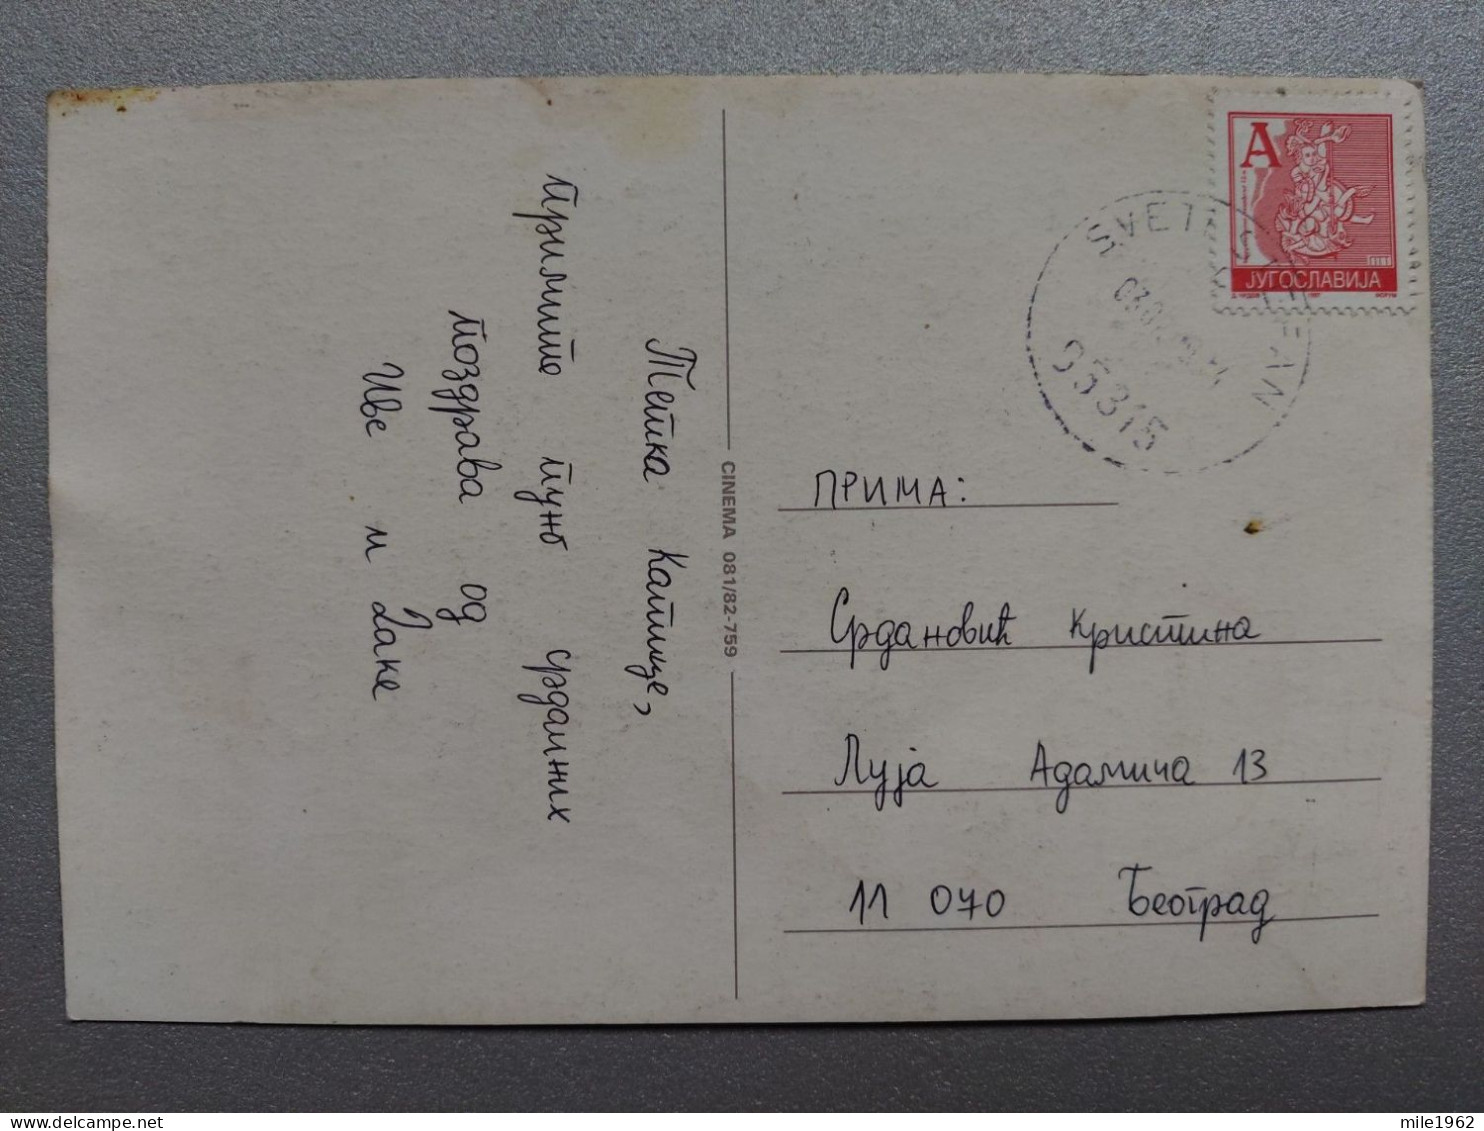 Тетка Катице,
Примите пуно срдачних
поздрава од
Иве и Лаке
CINEMA 081/82-759
A
ЈУГОСЛАВИЈА
85315
ПРИМА:
Срдановић Кристина
Луја Адамича 13
11 070 Београд
mile1962